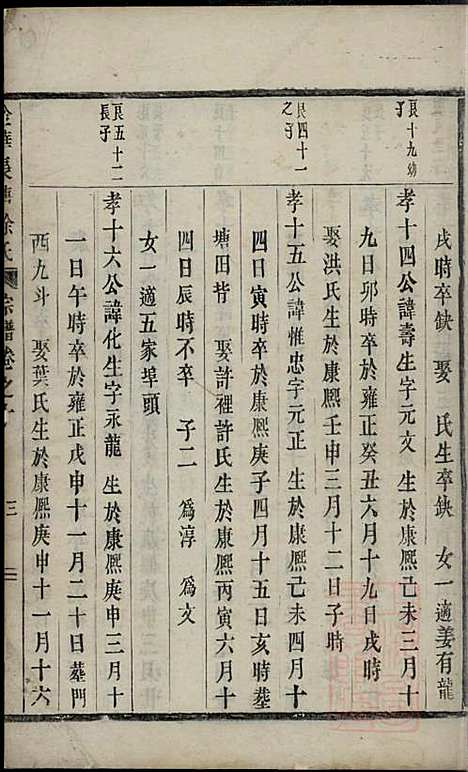 戌時卒缺 娶 氏生卒缺 女一適姜有龍
艮十九幼子
孝十四公諱壽生字元文 生於康熙己未三月十
九日卯時卒於雍正癸丑六月十九日戌時
娶洪氏生於康熙壬申三月十二日子時
艮四十一之子
孝十五公諱惟忠字元正 生於康熙己未四月十
四日寅時卒於康熙庚子四月十五日亥時塟
塘田背 娶許裡許氏生於康熙丙寅六月十
四日辰時不卒 子二 為淳 為文
女一適五家埠頭
艮五十二長子
孝十六公諱化生字永龍 生於康熙庚申三月十
一日午時卒於雍正戊申十一月二十日塟門
西九斗 娶葉氏生於康熙庚申十一月十六
金華長塘徐氏宗譜卷之 三